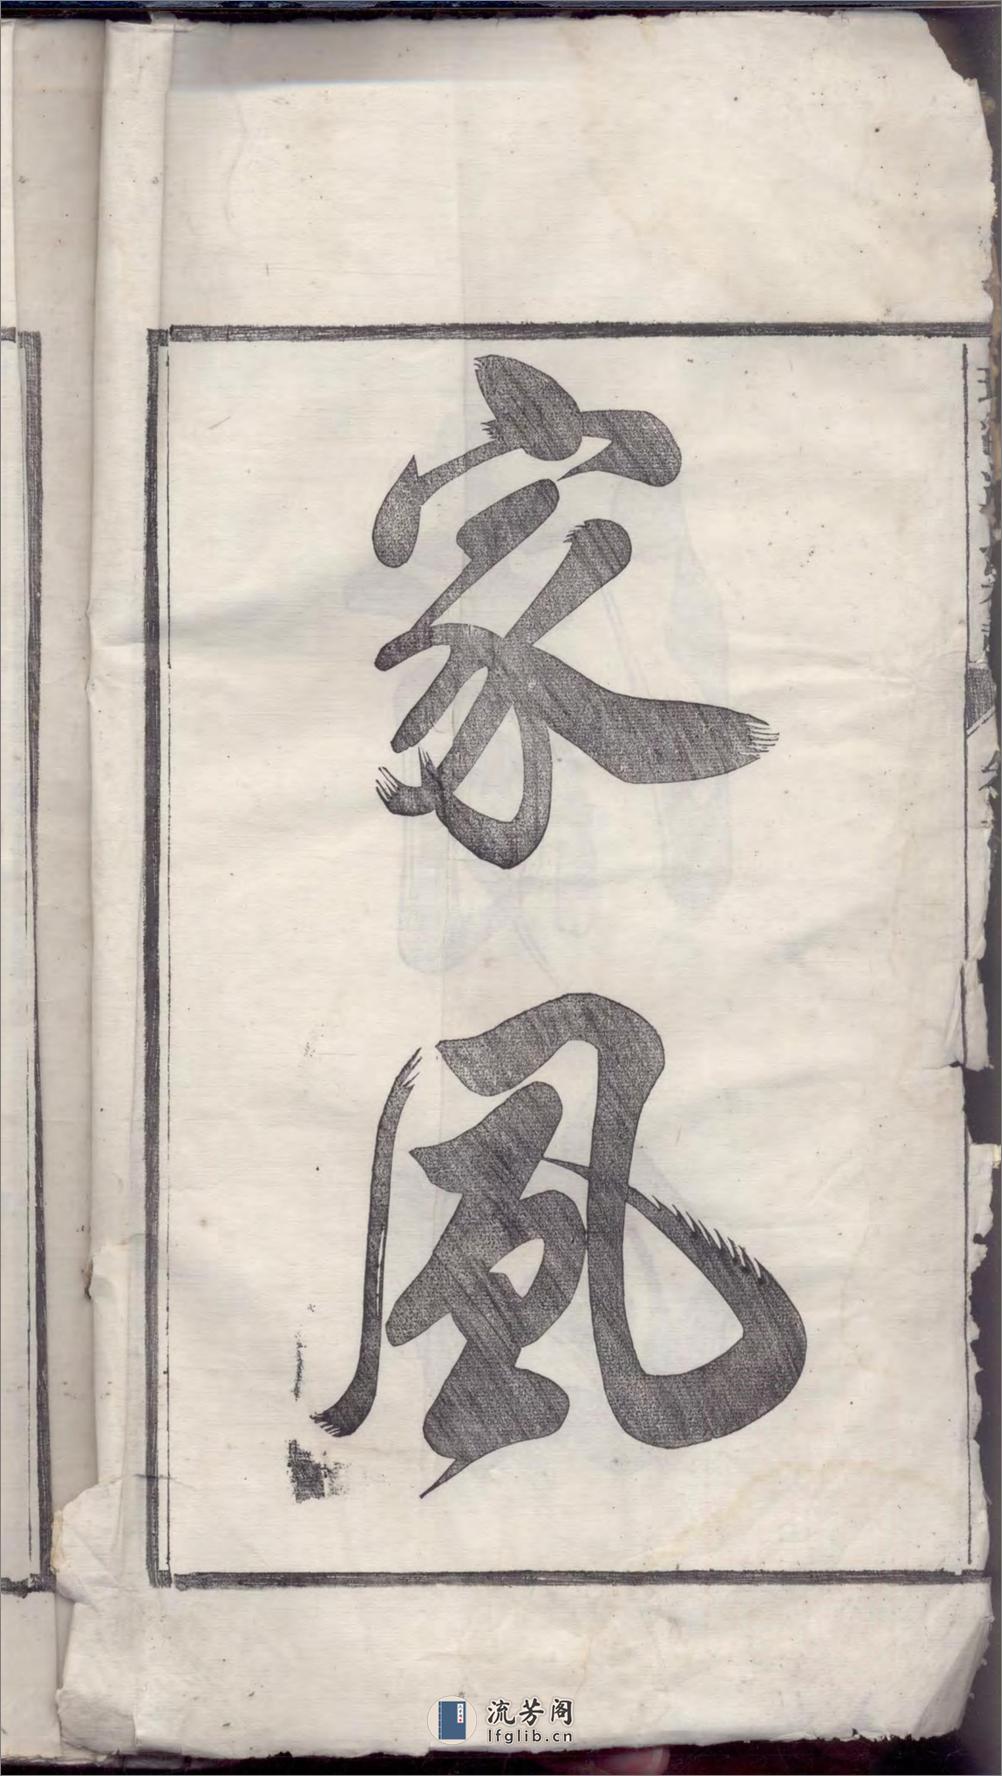 家
風
流芳阁
lfglib.cn